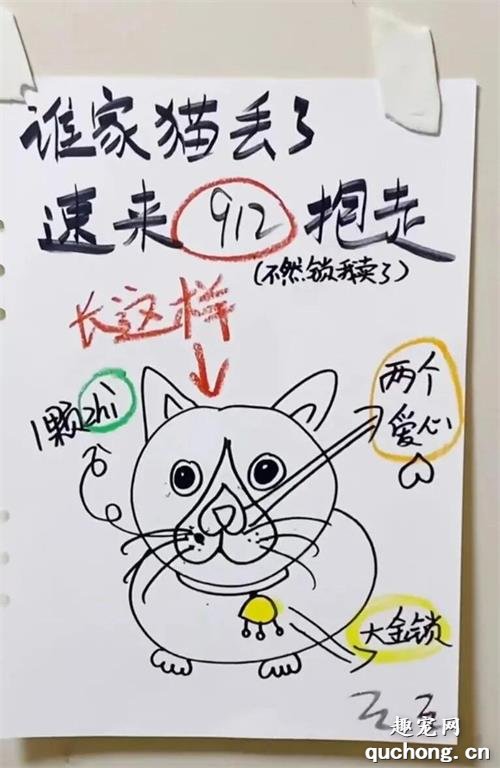 谁家猫丢了
速来 912 抱走
(不然锁我卖了)
长这样
1颗zhì
两个
爱心
大金锁
趣宠网
quchong.cn